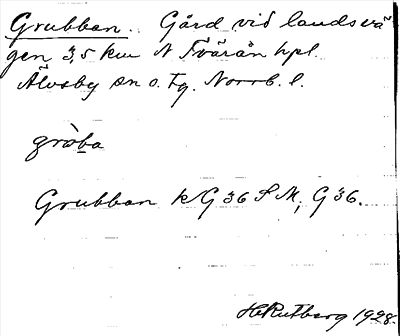 Grubban. Gård vid landsvä
gen 3,5 km N Tvärån hpl.
Älvsby sn o. tg. Norrb. l.
gròba
Grubban kG 36 SM, G 36.
H. Rutberg 1928.